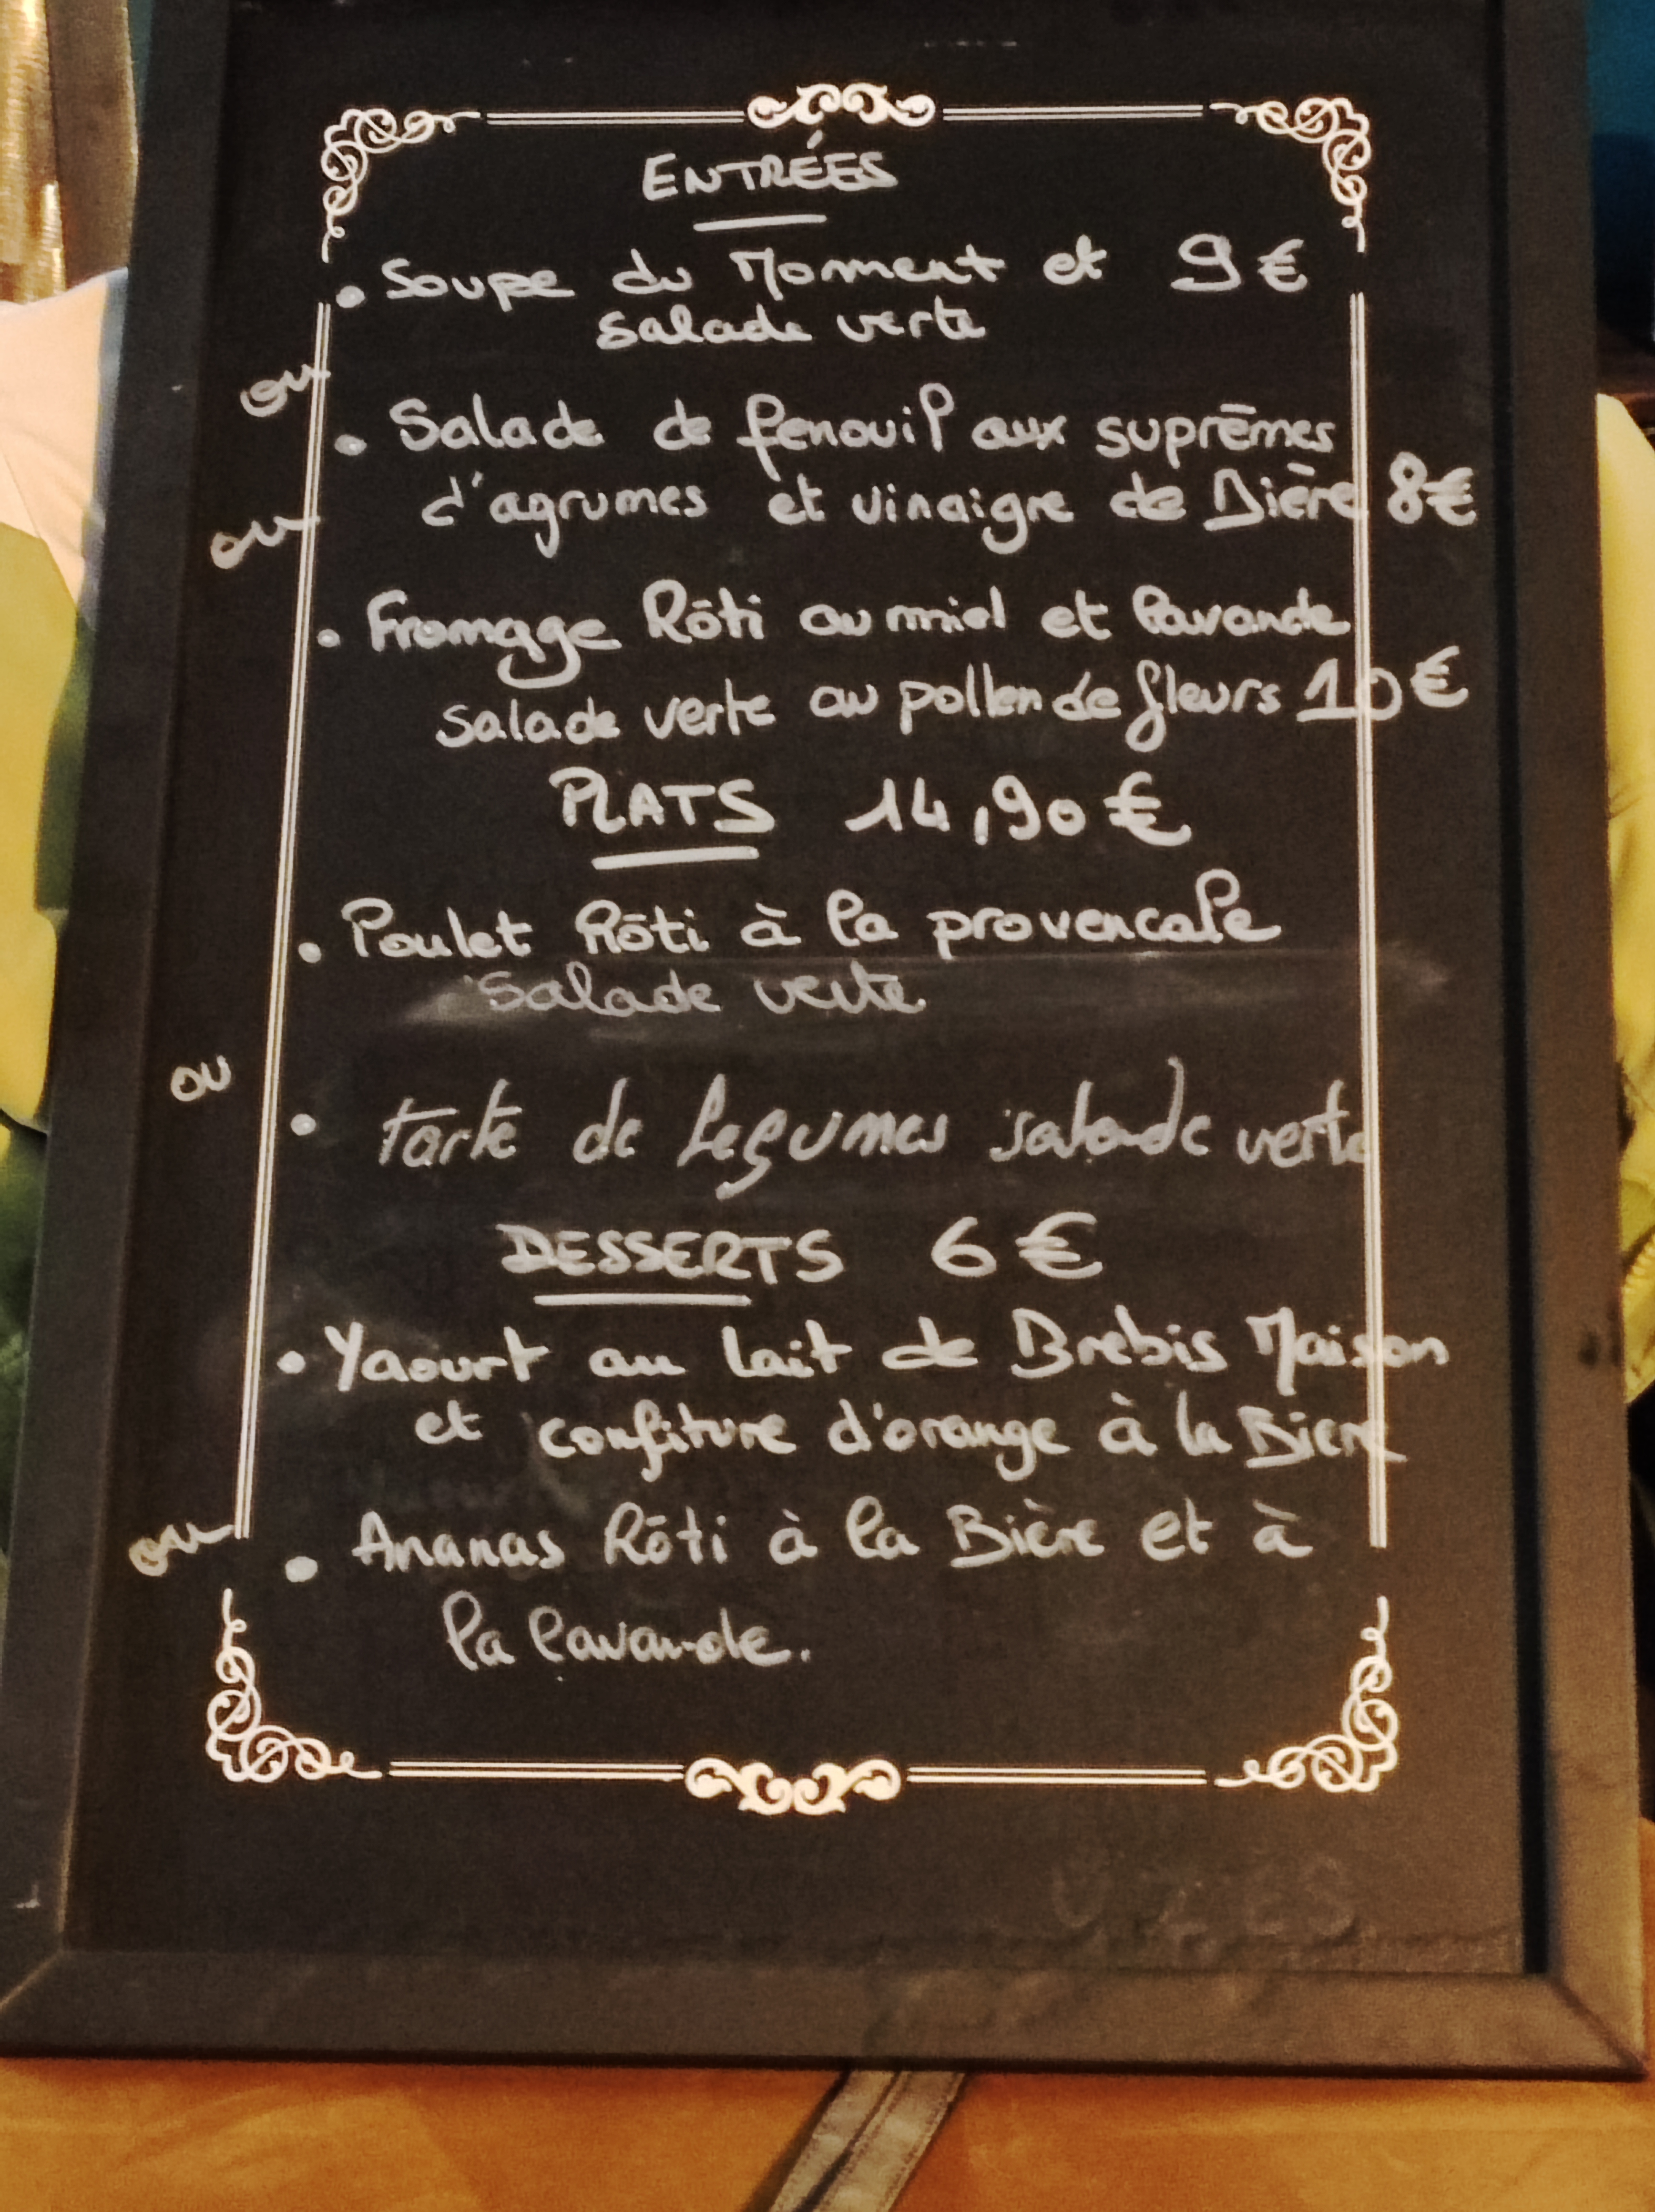 ENTRÉES
• Soupe du Moment et 9 €
salade verte
ou
• Salade de fenouil aux suprêmes
d'agrumes et vinaigre de Bière 8€
ou
• Fromage Rôti au miel et lavande
salade verte au pollen de fleurs 10€
PLATS 14,90 €
• Poulet Rôti à la provencale
Salade verte
ou
• tarte de legumes salade verte
DESSERTS 6 €
• Yaourt au lait de Brebis Maison
et confiture d'orange à la Biere
ou
• Ananas Rôti à la Bière et à
la lavande.